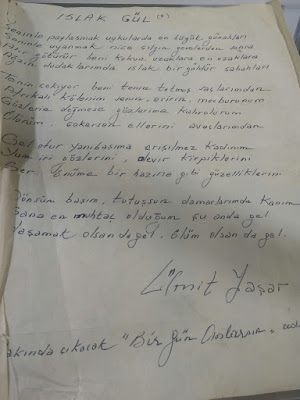 ISLAK GÜL (*)
Seninle paylaşmak uykularda en büyük yücelikleri
Seninle uyanmak nice çılgın gecelerden sonra
Alır götürür beni kokun uzaklara en uzaklara
Ağzın dudaklarımda ıslak bir güldür sabahları
Tanrı çekiyor beni tenin tutmuş saçlarından
Afrikalı kölenim senin, esirin, mecburunum
Gözlerin değmese gözlerime kahrolurum
Ölürüm, çekersen ellerini avuçlarımdan
Gel otur yanıbaşıma erişilmez kadınım
Yum iri gözlerini, devir kirpiklerini
Ser önüme bir hazine gibi güzelliklerini
Dönsün başım, tutuşsun damarlarımda kanım
Sana en muhtaç olduğum şu anda gel
Yaşamak olsan da gel. Ölüm olsan da gel.
Ümit Yaşar
çıkacak "Bir Gün Anlarsın"